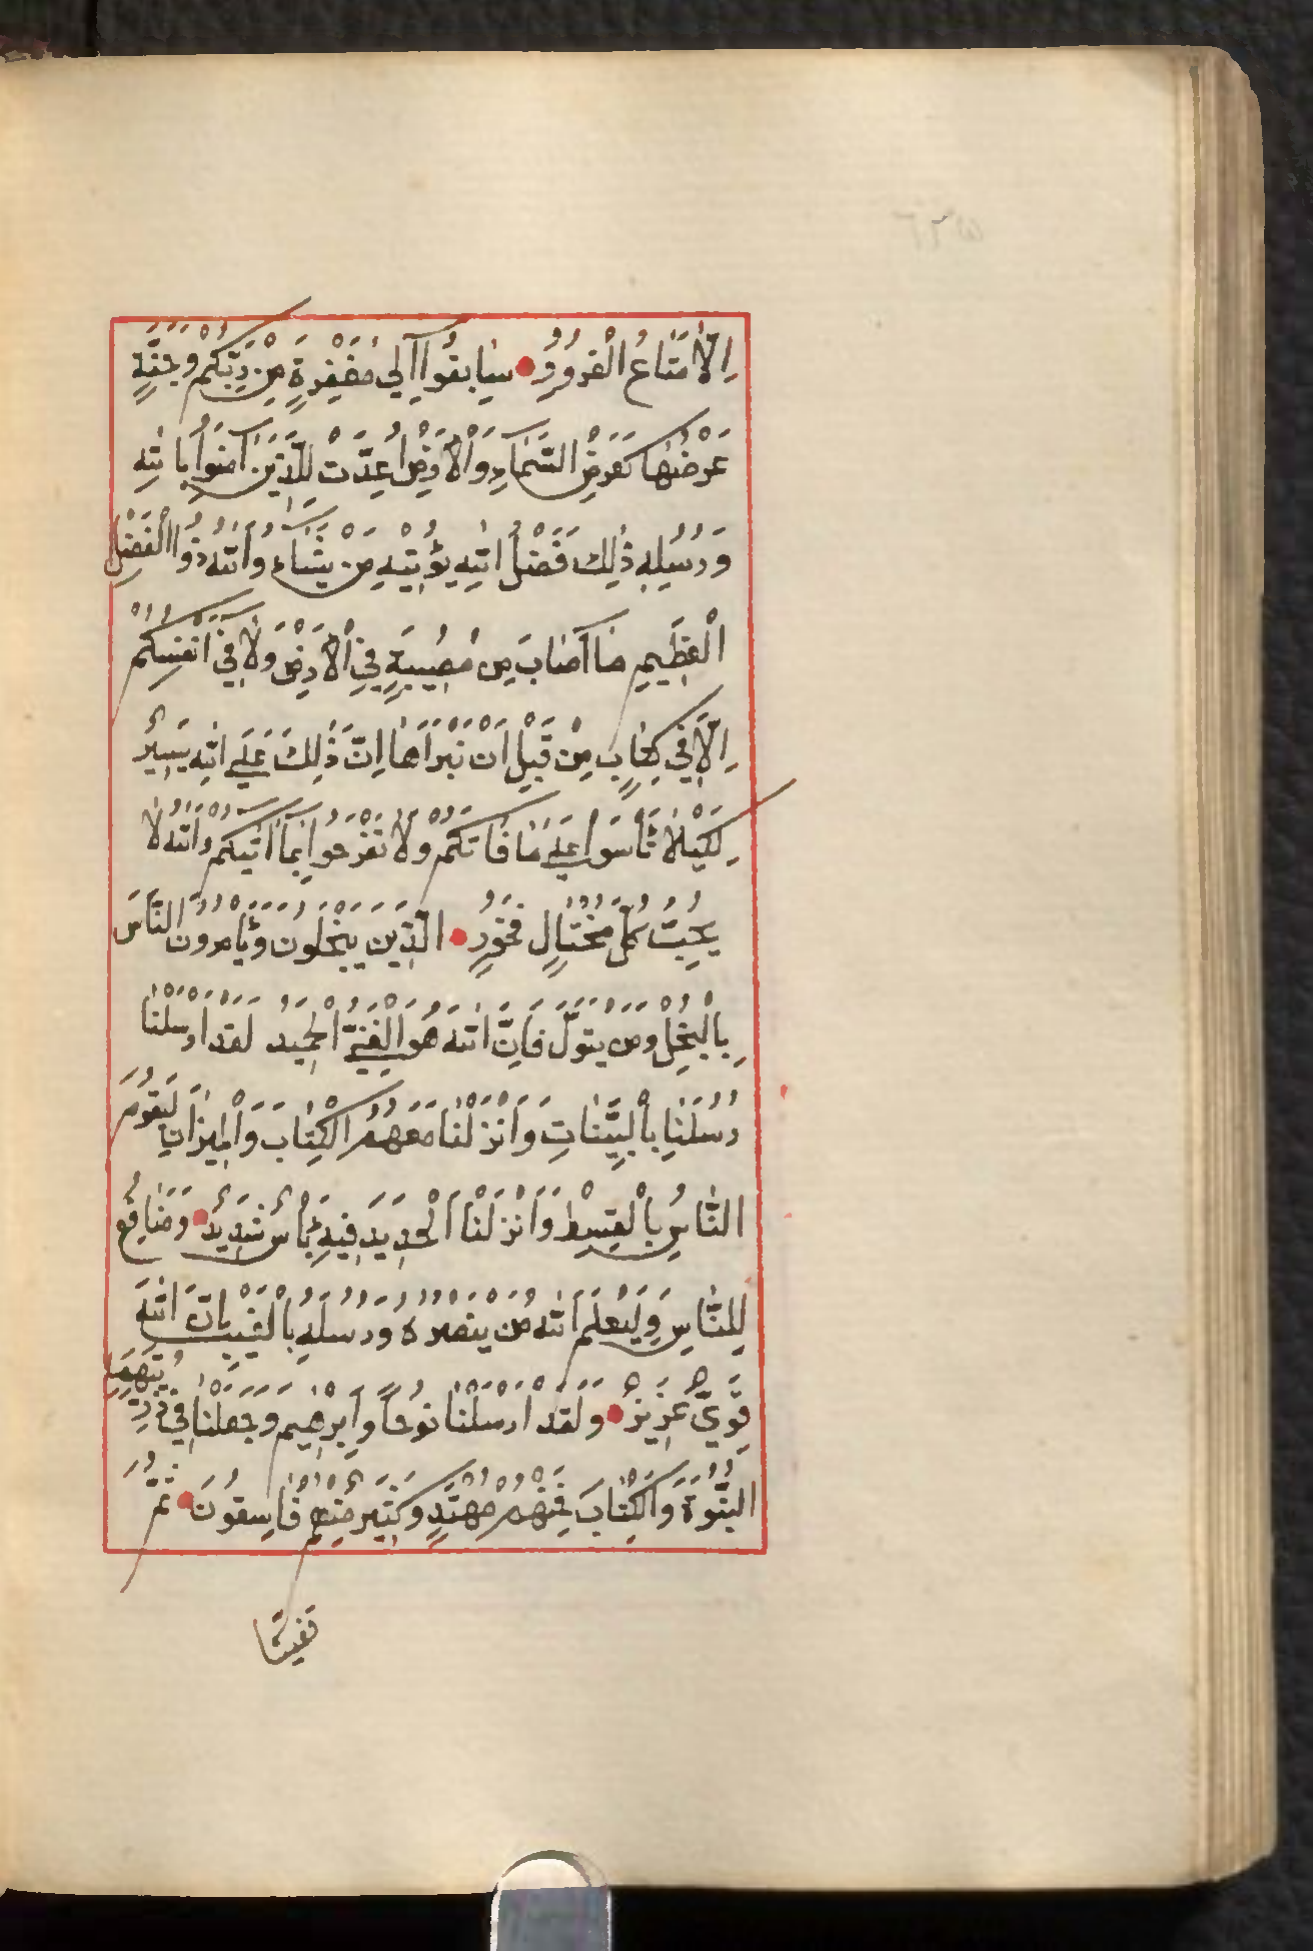 اِلَّا مَتَاعُ الْغُرُورِ سَابِقُوا اِلٰى مَغْفِرَةٍ مِنْ رَبِّكُمْ وَجَنَّةٍ
عَرْضُهَا كَعَرْضِ السَّمَاءِ وَالْاَرْضِ اُعِدَّتْ لِلَّذِينَ اٰمَنُوا بِاللهِ
وَرُسُلِهِ ذٰلِكَ فَضْلُ اللهِ يُؤْتِيهِ مَنْ يَشَاءُ وَاللهُ ذُوا الْفَضْلِ
الْعَظِيمِ مَا اَصَابَ مِنْ مُصِيبَةٍ فِي الْاَرْضِ وَلَا فِي اَنْفُسِكُمْ
اِلَّا فِي كِتَابٍ مِنْ قَبْلِ اَنْ نَبْرَاَهَا اِنَّ ذٰلِكَ عَلَى اللهِ يَسِيرٌ
لِكَيْلَا تَأْسَوْا عَلٰى مَا فَاتَكُمْ وَلَا تَفْرَحُوا بِمَا اٰتٰيكُمْ وَاللهُ لَا
يُحِبُّ كُلَّ مُخْتَالٍ فَخُورٍ الَّذِينَ يَبْخَلُونَ وَيَأْمُرُونَ النَّاسَ
بِالْبُخْلِ وَمَنْ يَتَوَلَّ فَاِنَّ اللهَ هُوَ الْغَنِيُّ الْحَمِيدُ لَقَدْ اَرْسَلْنَا
رُسُلَنَا بِالْبَيِّنَاتِ وَاَنْزَلْنَا مَعَهُمُ الْكِتَابَ وَالْمِيزَانَ لِيَقُومَ
النَّاسُ بِالْقِسْطِ وَاَنْزَلْنَا الْحَدِيدَ فِيهِ بَأْسٌ شَدِيدٌ وَمَنَافِعُ
لِلنَّاسِ وَلِيَعْلَمَ اللهُ مَنْ يَنْصُرُهُ وَرُسُلَهُ بِالْغَيْبِ اِنَّ اللهَ
قَوِيٌّ عَزِيزٌ وَلَقَدْ اَرْسَلْنَا نُوحًا وَاِبْرٰهِيمَ وَجَعَلْنَا فِي ذُرِّيَّتِهِمَا
النُّبُوَّةَ وَالْكِتَابَ فَمِنْهُمْ مُهْتَدٍ وَكَثِيرٌ مِنْهُمْ فَاسِقُونَ ثُمَّ
قَفَّيْنَا